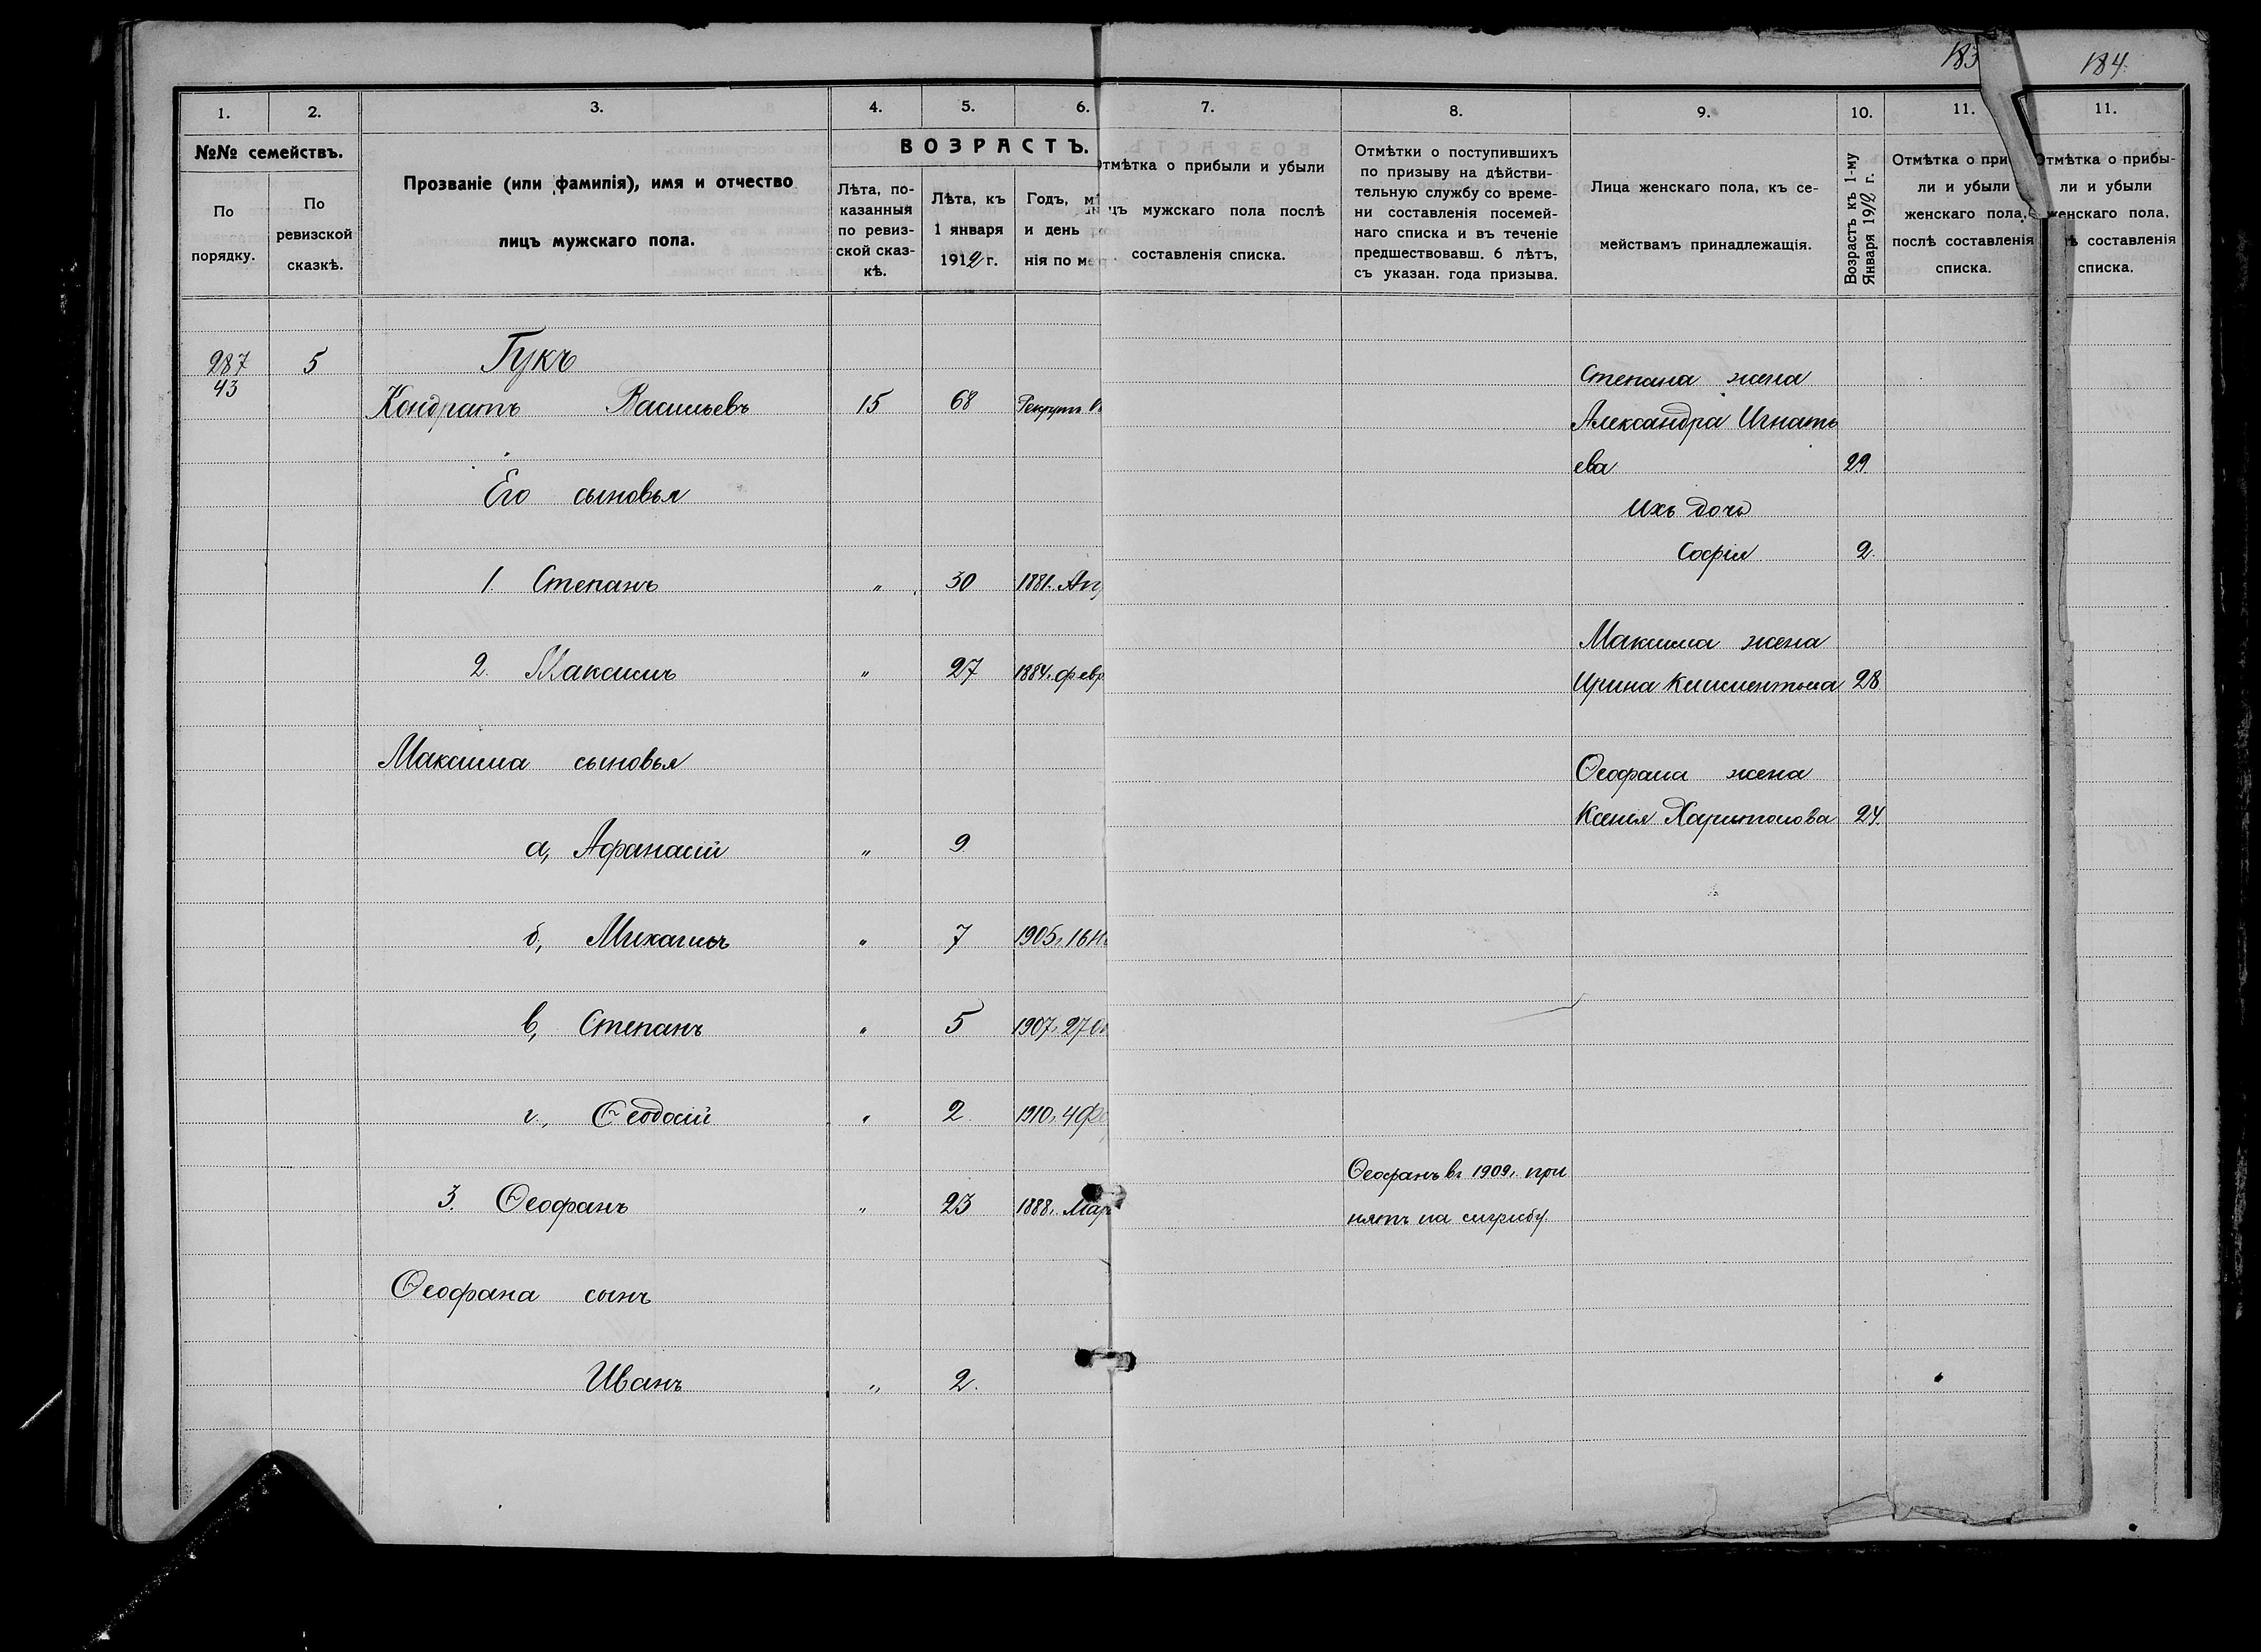 183
184
1. 2. 3. 4. 5. 6. 7. 8. 9. 10. 11. 11.
№№ семействъ.
По порядку.
По ревизской сказкѣ.
Прозваніе (или фамилія), имя и отчество
лицъ мужскаго пола.
ВОЗРАСТЪ.
Лѣта, по-
казанныя
по ревиз-
ской сказ-
кѣ.
Лѣта, къ
1 января
1912 г.
Годъ,
и день
нія по
Отмѣтка о прибыли и убыли
мужскаго пола послѣ
составленія списка.
Отмѣтки о поступившихъ
по призыву на дѣйстви-
тельную службу со време-
ни составленія посемей-
наго списка и въ теченіе
предшествовавш. 6 лѣтъ,
съ указан. года призыва.
Лица женскаго пола, къ се-
мействамъ принадлежащія.
Возрастъ къ 1-му
Января 1912 г.
Отмѣтка о при
ли и убыли
женскаго пола,
послѣ составленія
списка.
Отмѣтка о прибы-
ли и убыли
женскаго пола,
составленія
списка.
287 5 Гукъ
43
Кондратъ Васильевъ 15 68 Рекрутъ
Его сыновья
1. Степанъ " 30 1881.
2. Максимъ " 27 1884. февр
Максима сыновья
а, Афанасій " 9
б, Михаилъ " 7 1905, 16
в, Степанъ " 5 1907, 27
г., Ѳеодосій " 2 1910, 4 Фе
3. Ѳеофанъ " 23 1888, Мар
Ѳеофана сынъ
Иванъ " 2.
Ѳеофанъ въ 1909, при
нятъ на службу.
Степана жена
Александра Игнать
ева 29
Ихъ дочь
Софія 2.
Максима жена
Ирина Климентьева 28
Ѳеофана жена
Ксенія Харитонова 24.